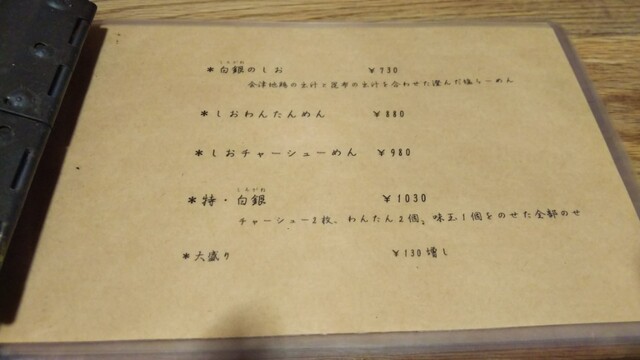 しろがね
＊白銀のしお ￥730
会津地鶏の出汁と昆布の出汁を合わせた澄んだ塩らーめん
＊しおわんたんめん ￥880
＊しおチャーシューめん ￥980
しろがね
＊特・白銀 ￥1030
チャーシュー2枚、わんたん2個、味玉1個をのせた全部のせ
＊大盛り ￥130増し